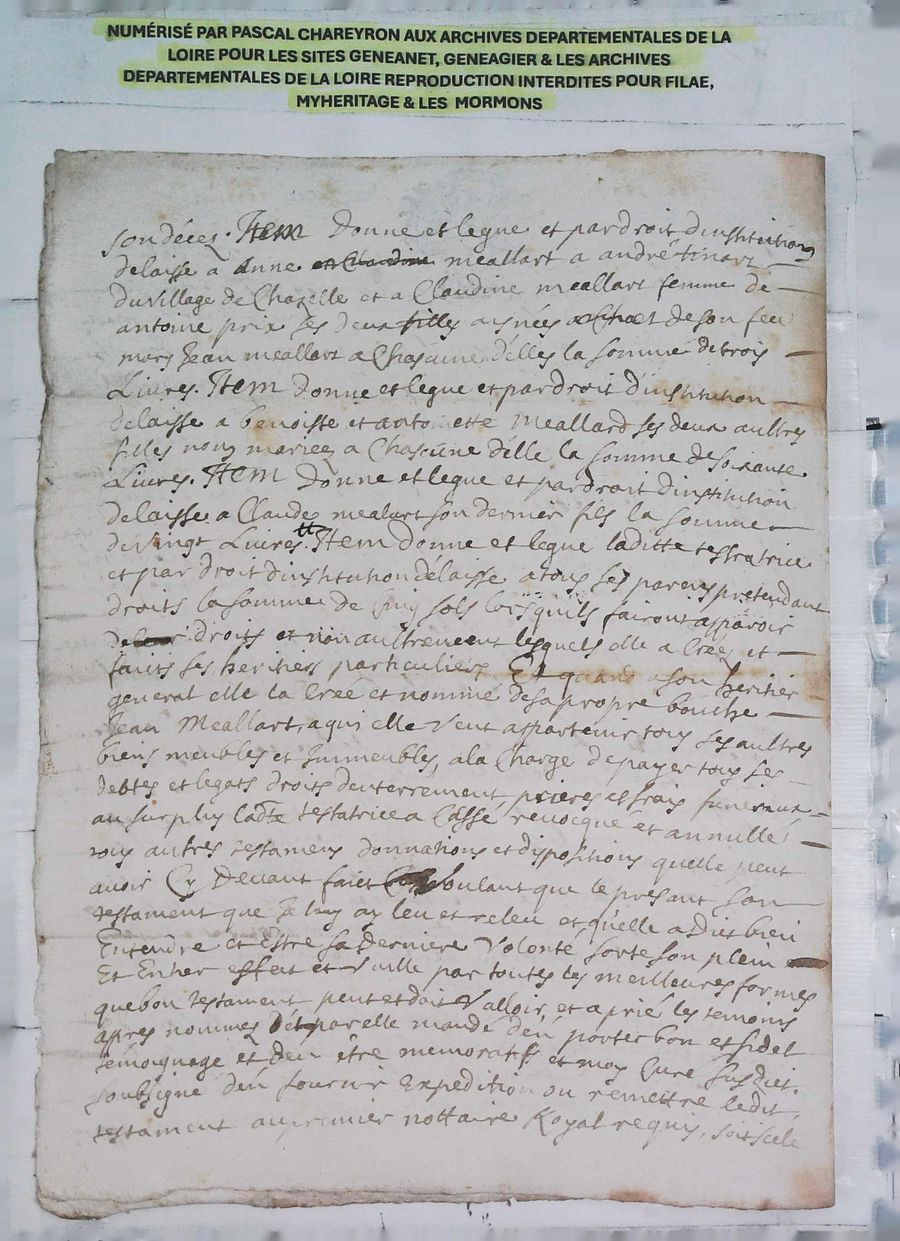 NUMÉRISÉ PAR PASCAL CHAREYRON AUX ARCHIVES DEPARTEMENTALES DE LA
LOIRE POUR LES SITES GENEANET, GENEAGIER & LES ARCHIVES
DEPARTEMENTALES DE LA LOIRE REPRODUCTION INTERDITES POUR FILAE,
MYHERITAGE & LES MORMONS
son décez. Item donne et legue et par droit dinstitution
delaisse a Anne et Claudine meallart a andré tinart
du village de Chazelle et a Claudine meallart femme de
antoine prix les deux filles aisnées de son feu
mary Jean meallart a Chascune d'elles la somme de trois
Livres. Item donne et legue et par droit d'institution
delaisse a benoiste et antoinette Meallard ses deux aultres
filles non mariéez a Chascune d'elle la somme de soixante
Livres. Item donne et legue et par droit d'institution
delaisse a Claude mealart son dernier fils la somme
de vingt Livres tt. Item donne et legue laditte testatrice
et par droit d'institution delaisse a tous ses parens pretendant
droits la somme de cinq sols lorsquils fairont apparoir
de droits et non aultrement lesquels elle a Créés et
faits ses heritiers particuliers Et quand a son heritier
general elle la Créé et nommé de sa propre bouche
Jean Meallart, a qui elle veut appartenir tous ses aultres
biens meubles et Immeubles, a la Charge de payer tous ses
debtes et legats droits denterrement, prieres et frais funeraux
au surplus ladte testatrice a Cassé, revocqué et annullé
tous autres testamens donnations et dispositions quelle peut
avoir Cy Devant faict voulant que le present son
testament que Je luy ay leu et releu et qu'elle a dict bien
Entendre et Estre sa derniere Volonté, sorte son plein
Et Entier effect et vaille par toutes les meilleures formes
que bon testament peut et doit Valloir, et a prié les temoins
apres nommés par elle mandé d'en porter bon et fidel
témoignage et den être memoratifs et moy Curé susdict
soubsigné d'en fournir Expedition ou remettre ledit
testament au premier nottaire Royal requis, soit scele